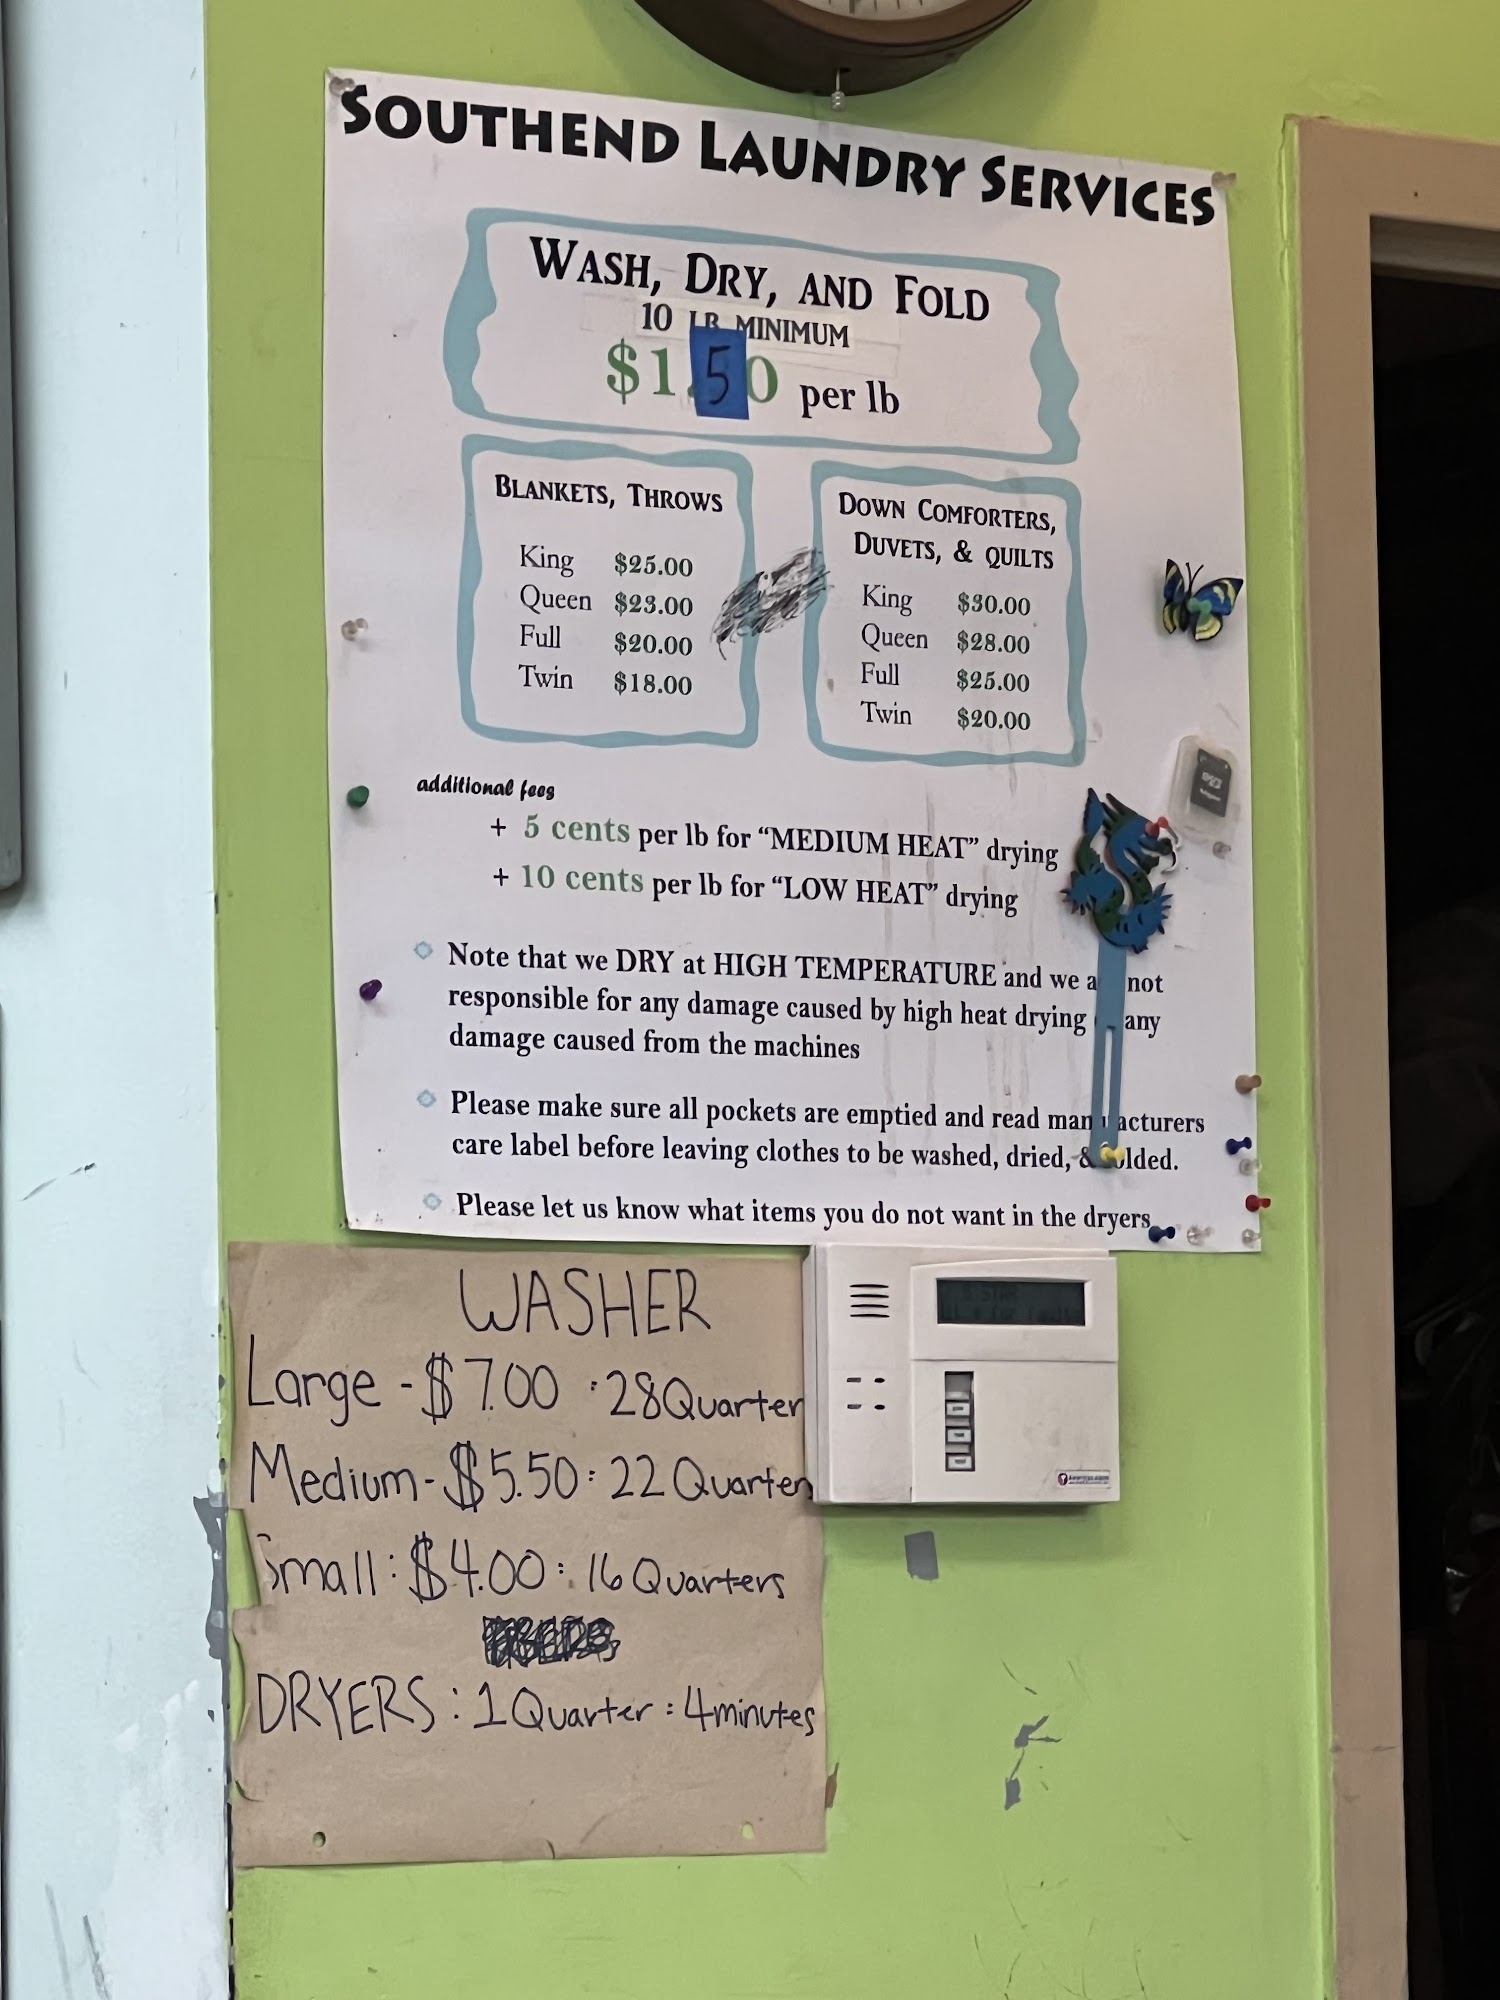 SOUTHEND LAUNDRY SERVICES
WASH, DRY, AND FOLD
10 LB MINIMUM
$1.50 per lb
BLANKETS, THROWS
King $25.00
Queen $23.00
Full $20.00
Twin $18.00
DOWN COMFORTERS,
DUVETS, & QUILTS
King $30.00
Queen $28.00
Full $25.00
Twin $20.00
additional fees
+ 5 cents per lb for “MEDIUM HEAT” drying
+ 10 cents per lb for “LOW HEAT” drying
Note that we DRY at HIGH TEMPERATURE and we a not
responsible for any damage caused by high heat drying any
damage caused from the machines
Please make sure all pockets are emptied and read manufacturers
care label before leaving clothes to be washed, dried, & folded.
Please let us know what items you do not want in the dryers
WASHER
Large - $7.00 : 28 Quarter
Medium - $5.50 : 22 Quarter
Small : $4.00 : 16 Quarters
DRYERS : 1 Quarter : 4 minutes